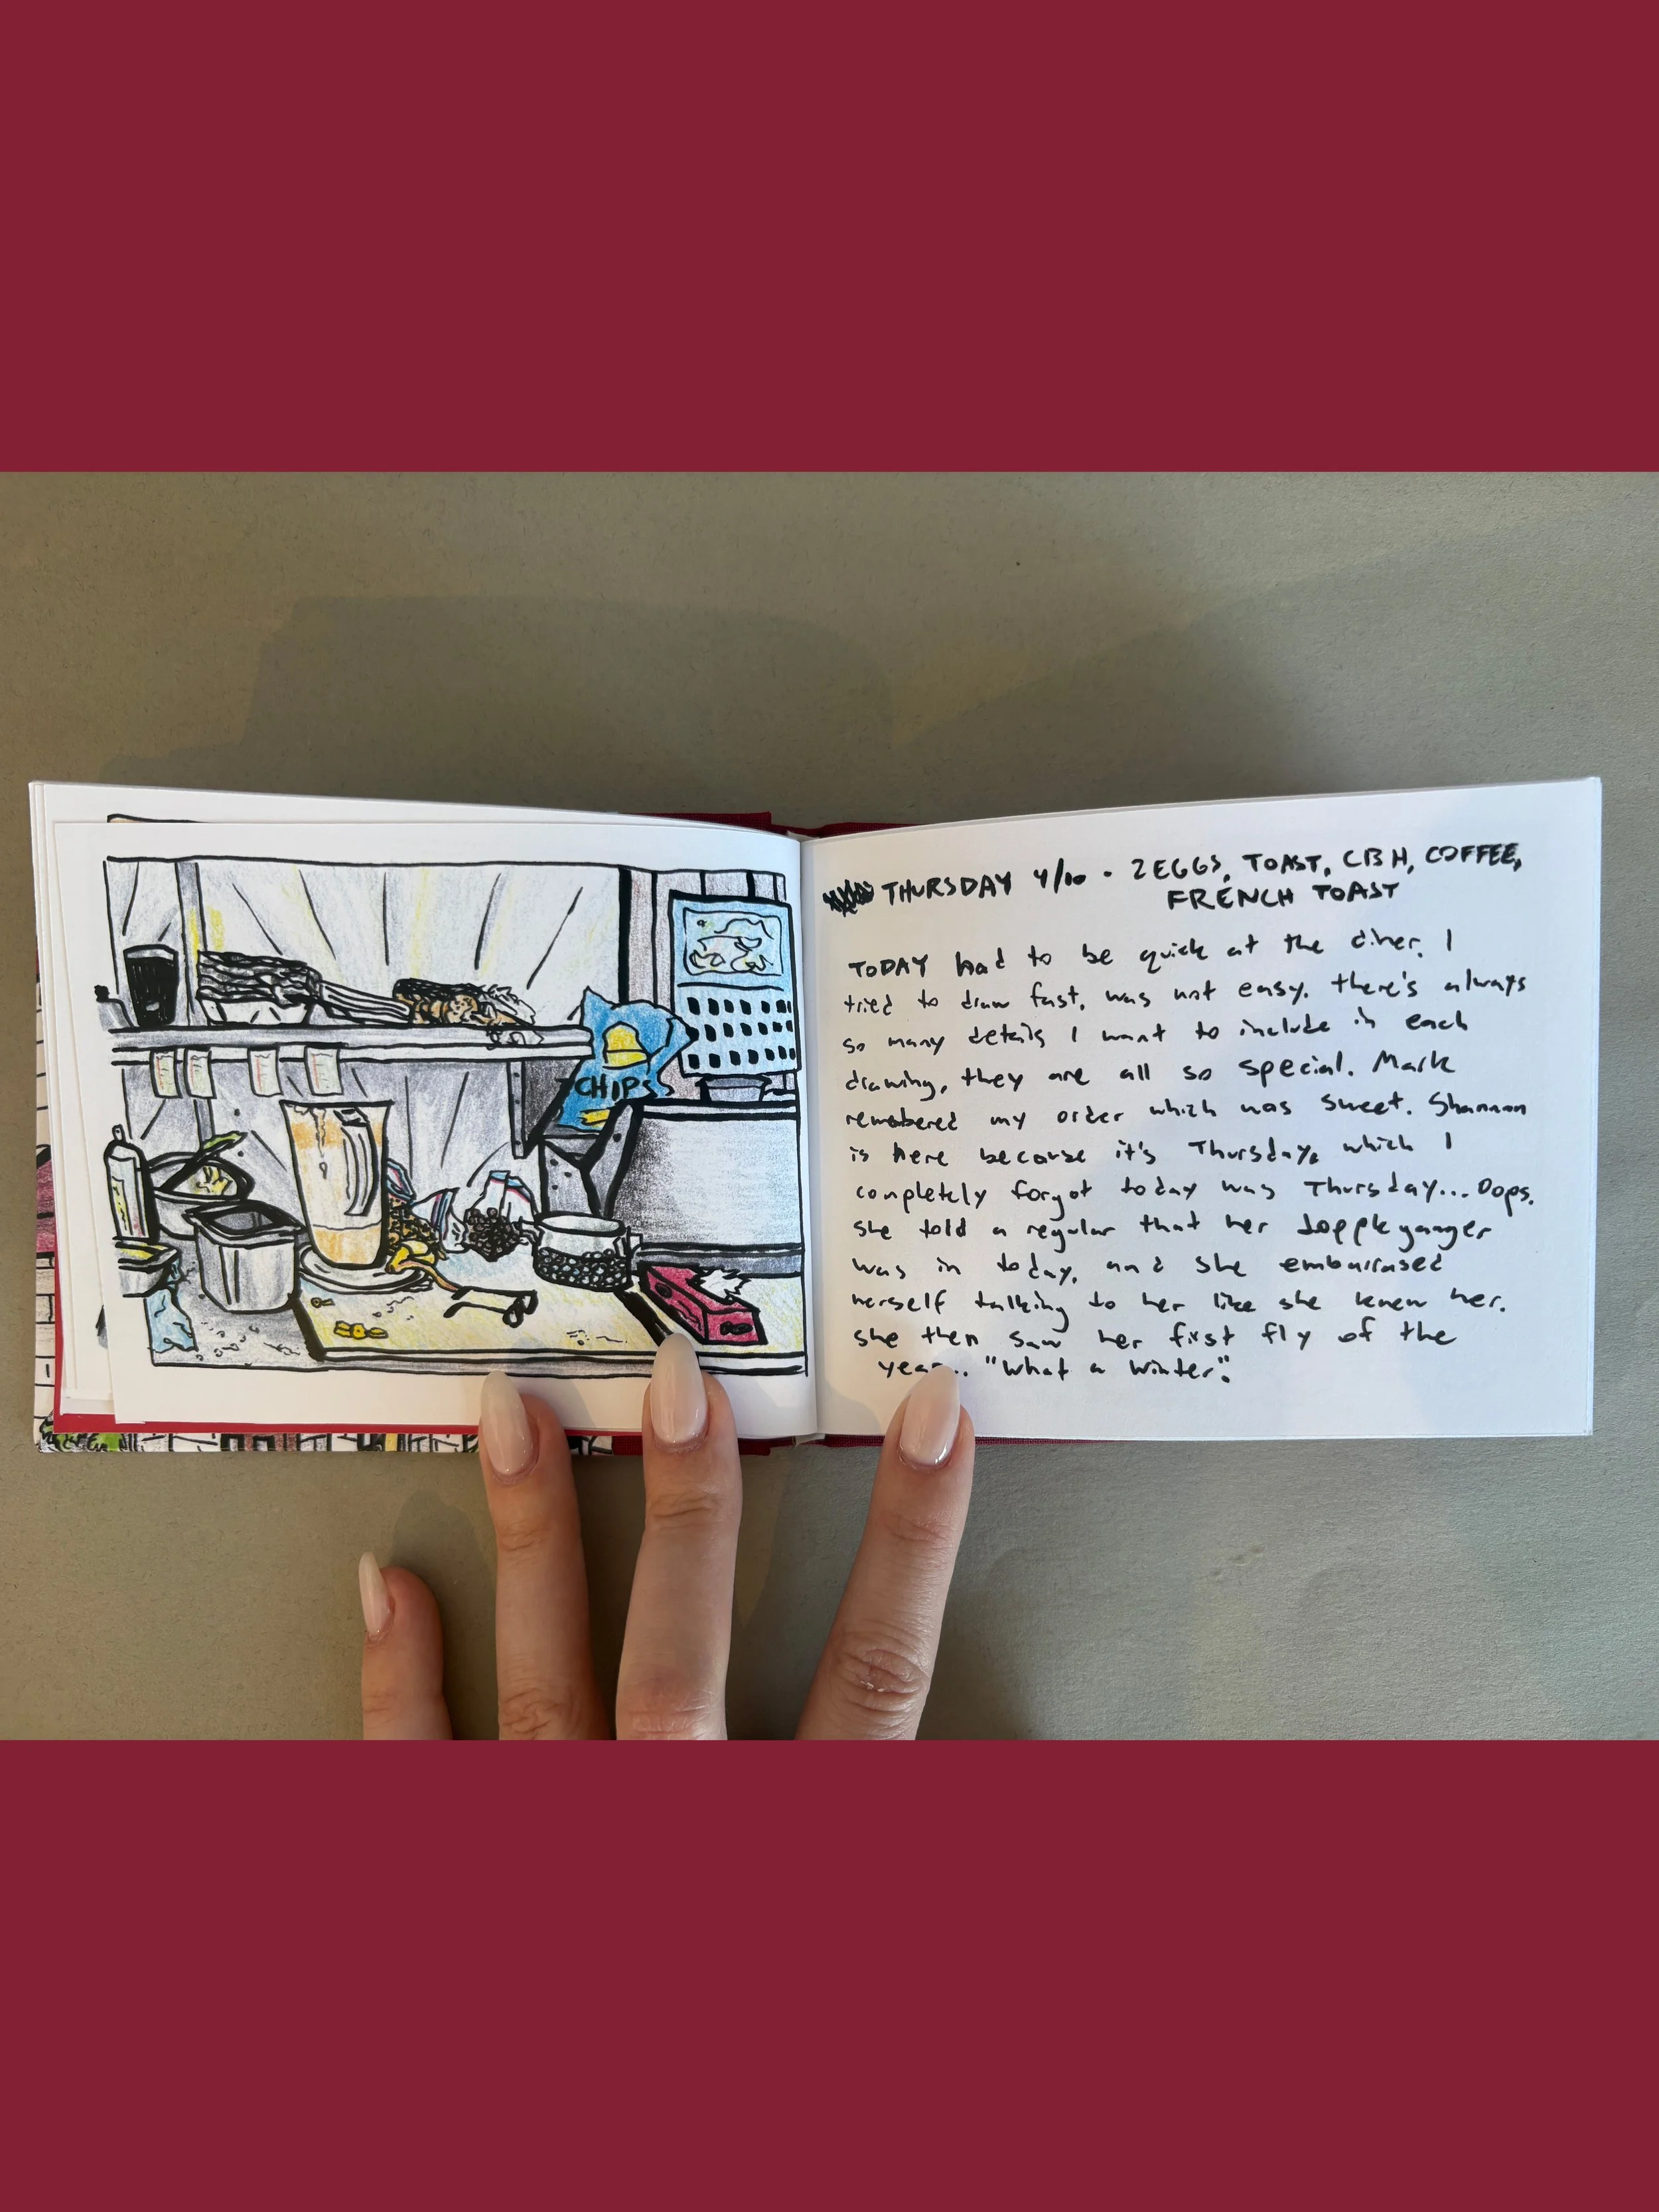 CHIPS
THURSDAY 4/10 - 2 EGGS, TOAST, CBH, COFFEE,
FRENCH TOAST
TODAY had to be quick at the diner. I
tried to draw fast, was not easy. there's always
so many details I want to include in each
drawing, they are all so special. Mark
remebered my order which was sweet. Shannon
is here because it's Thursday, which I
completely forgot today was Thursday... Oops.
She told a regular that her doppleganger
was in today, and she embarrased
herself talking to her like she knew her.
she then saw her first fly of the
year.. "What a winter".